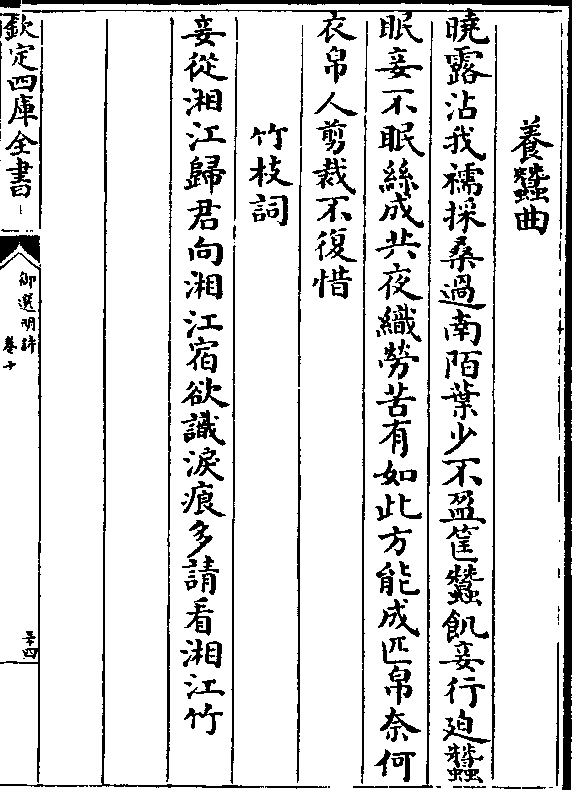 養蠶曲
曉露沾我襦採桑過南陌葉少不盈筐蠶飢妾行廹蠶
眠妾不眠絲成共夜織勞苦有如此方能成匹帛奈何
衣帛人剪裁不復惜
竹枝詞
妾從湘江歸君向湘江宿欲識淚痕多請看湘江竹
欽定四庫全書
御選明詩
卷十
二十四